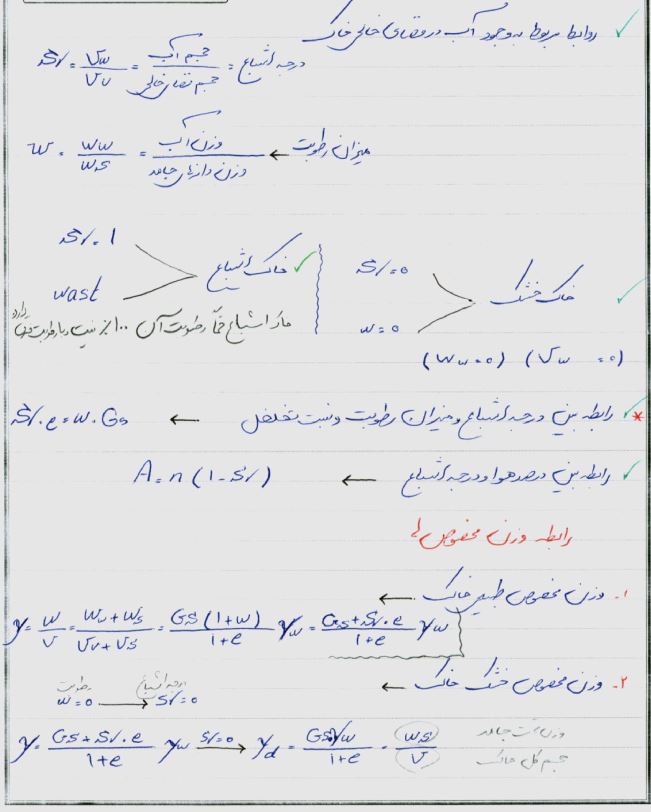 روابط مربوط به وجود آب در فضای خالی خاک
درجه اشباع = حجم آب / حجم فضای خالی = Vw / Vv = Sr
میزان رطوبت ← وزن آب / وزن دانه‌های جامد = Ww / Ws = w
خاک خشک Sr=0 w=0
(Ww=0) (Vw=0)
خاک اشباع Sr=1 wsat
خاک اشباع حتماً رطوبت آن ۱۰۰٪ نیست
رابطه بین درجه اشباع و میزان رطوبت و نسبت تخلخل ← Sr.e=w.Gs
رابطه بین درصد هوا و درجه اشباع ← A=n(1-Sr)
رابطه وزن مخصوص‌ها
۱. وزن مخصوص طبیعی خاک ←
γ = W/V = (Ww+Ws)/(Vv+Vs) = Gs(1+w)/(1+e) γw = (Gs+Sr.e)/(1+e) γw
۲. وزن مخصوص خشک خاک ←
رطوبت w=0 → درجه اشباع Sr=0
γ = (Gs+Sr.e)/(1+e) γw Sr=0 → γd = Gsγw/(1+e) = Ws/V
وزن قسمت جامد
حجم کل خاک